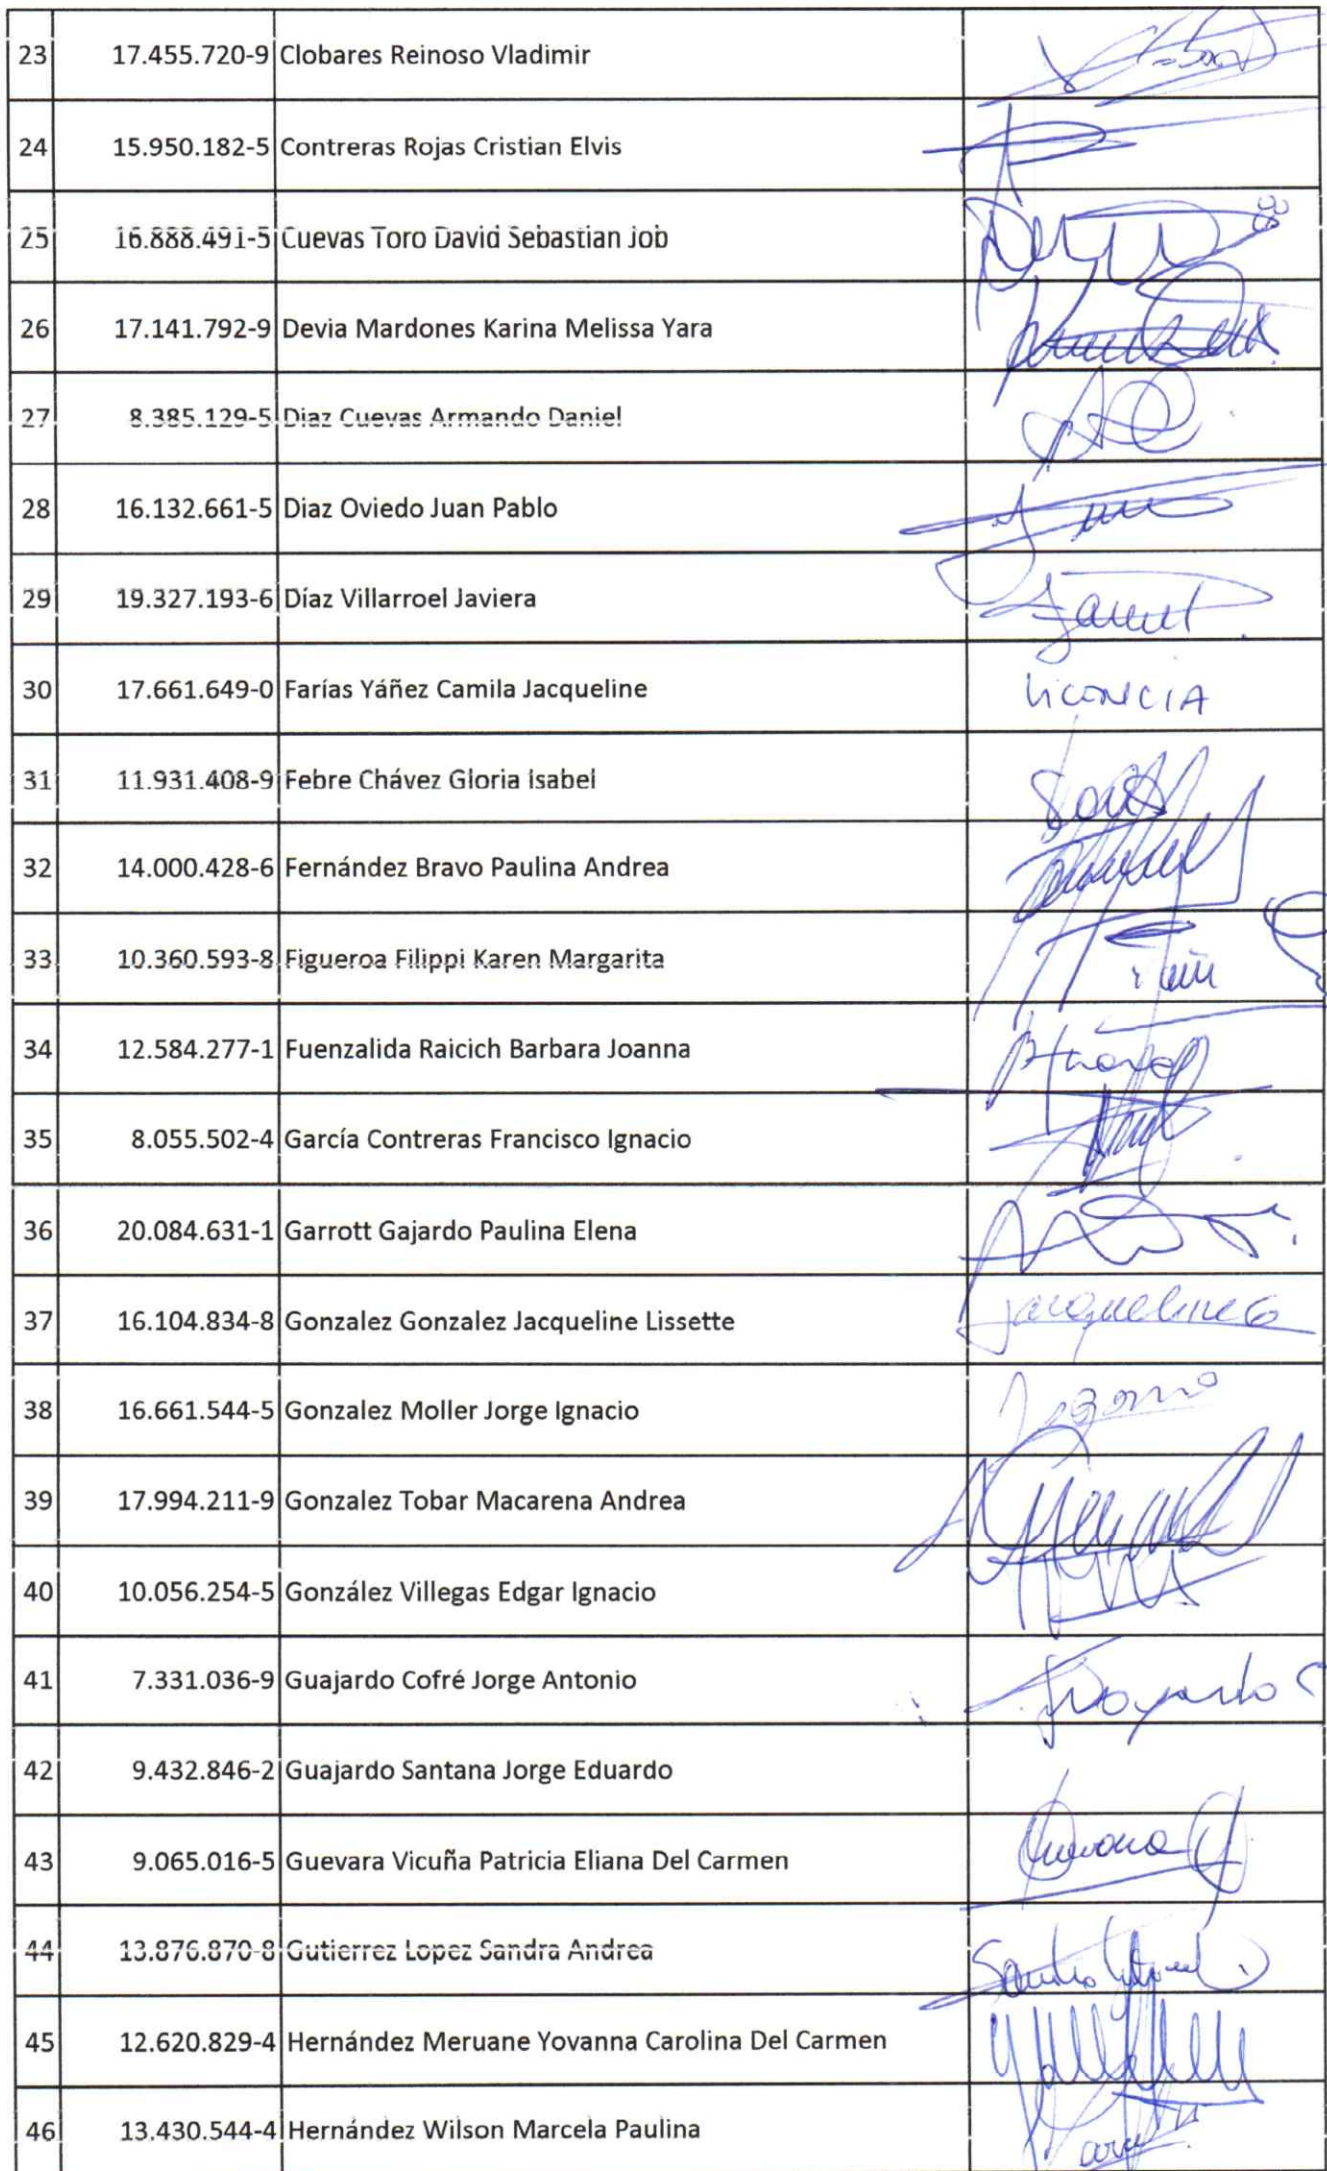 23 17.455.720-9 Clobares Reinoso Vladimir
24 15.950.182-5 Contreras Rojas Cristian Elvis
25 16.888.491-5 Cuevas Toro David Sebastian Job
26 17.141.792-9 Devia Mardones Karina Melissa Yara
27 8.385.129-5 Diaz Cuevas Armando Daniel
28 16.132.661-5 Diaz Oviedo Juan Pablo
29 19.327.193-6 Díaz Villarroel Javiera
30 17.661.649-0 Farías Yáñez Camila Jacqueline LicenciA
31 11.931.408-9 Febre Chávez Gloria Isabel
32 14.000.428-6 Fernández Bravo Paulina Andrea
33 10.360.593-8 Figueroa Filippi Karen Margarita
34 12.584.277-1 Fuenzalida Raicich Barbara Joanna
35 8.055.502-4 García Contreras Francisco Ignacio
36 20.084.631-1 Garrott Gajardo Paulina Elena
37 16.104.834-8 Gonzalez Gonzalez Jacqueline Lissette Jacqueline G
38 16.661.544-5 Gonzalez Moller Jorge Ignacio
39 17.994.211-9 Gonzalez Tobar Macarena Andrea
40 10.056.254-5 González Villegas Edgar Ignacio
41 7.331.036-9 Guajardo Cofré Jorge Antonio
42 9.432.846-2 Guajardo Santana Jorge Eduardo
43 9.065.016-5 Guevara Vicuña Patricia Eliana Del Carmen
44 13.876.870-8 Gutierrez Lopez Sandra Andrea
45 12.620.829-4 Hernández Meruane Yovanna Carolina Del Carmen
46 13.430.544-4 Hernández Wilson Marcela Paulina